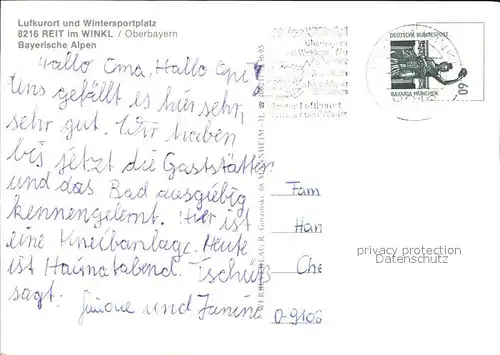 Lufkurort und Wintersportplatz
8216 REIT im WINKL / Oberbayern
Bayerische Alpen
Hallo Oma, Hallo Opi
Uns gefällt es hier sehr,
sehr gut. Wir haben
bis jetzt die Gaststätten
und das Bad ausgiebig
kennengelernt. Hier ist
eine Kneibanlage. Heute
ist Haimatabend. Tschüß
sagt:
Simone und Janine
WERBEVERLAG R. 68 MANNHEIM 31,
DEUTSCHE BUNDESPOST
BAVARIA MÜNCHEN
60
Fam
Han
Che
O-9106
privacy protection
Datenschutz